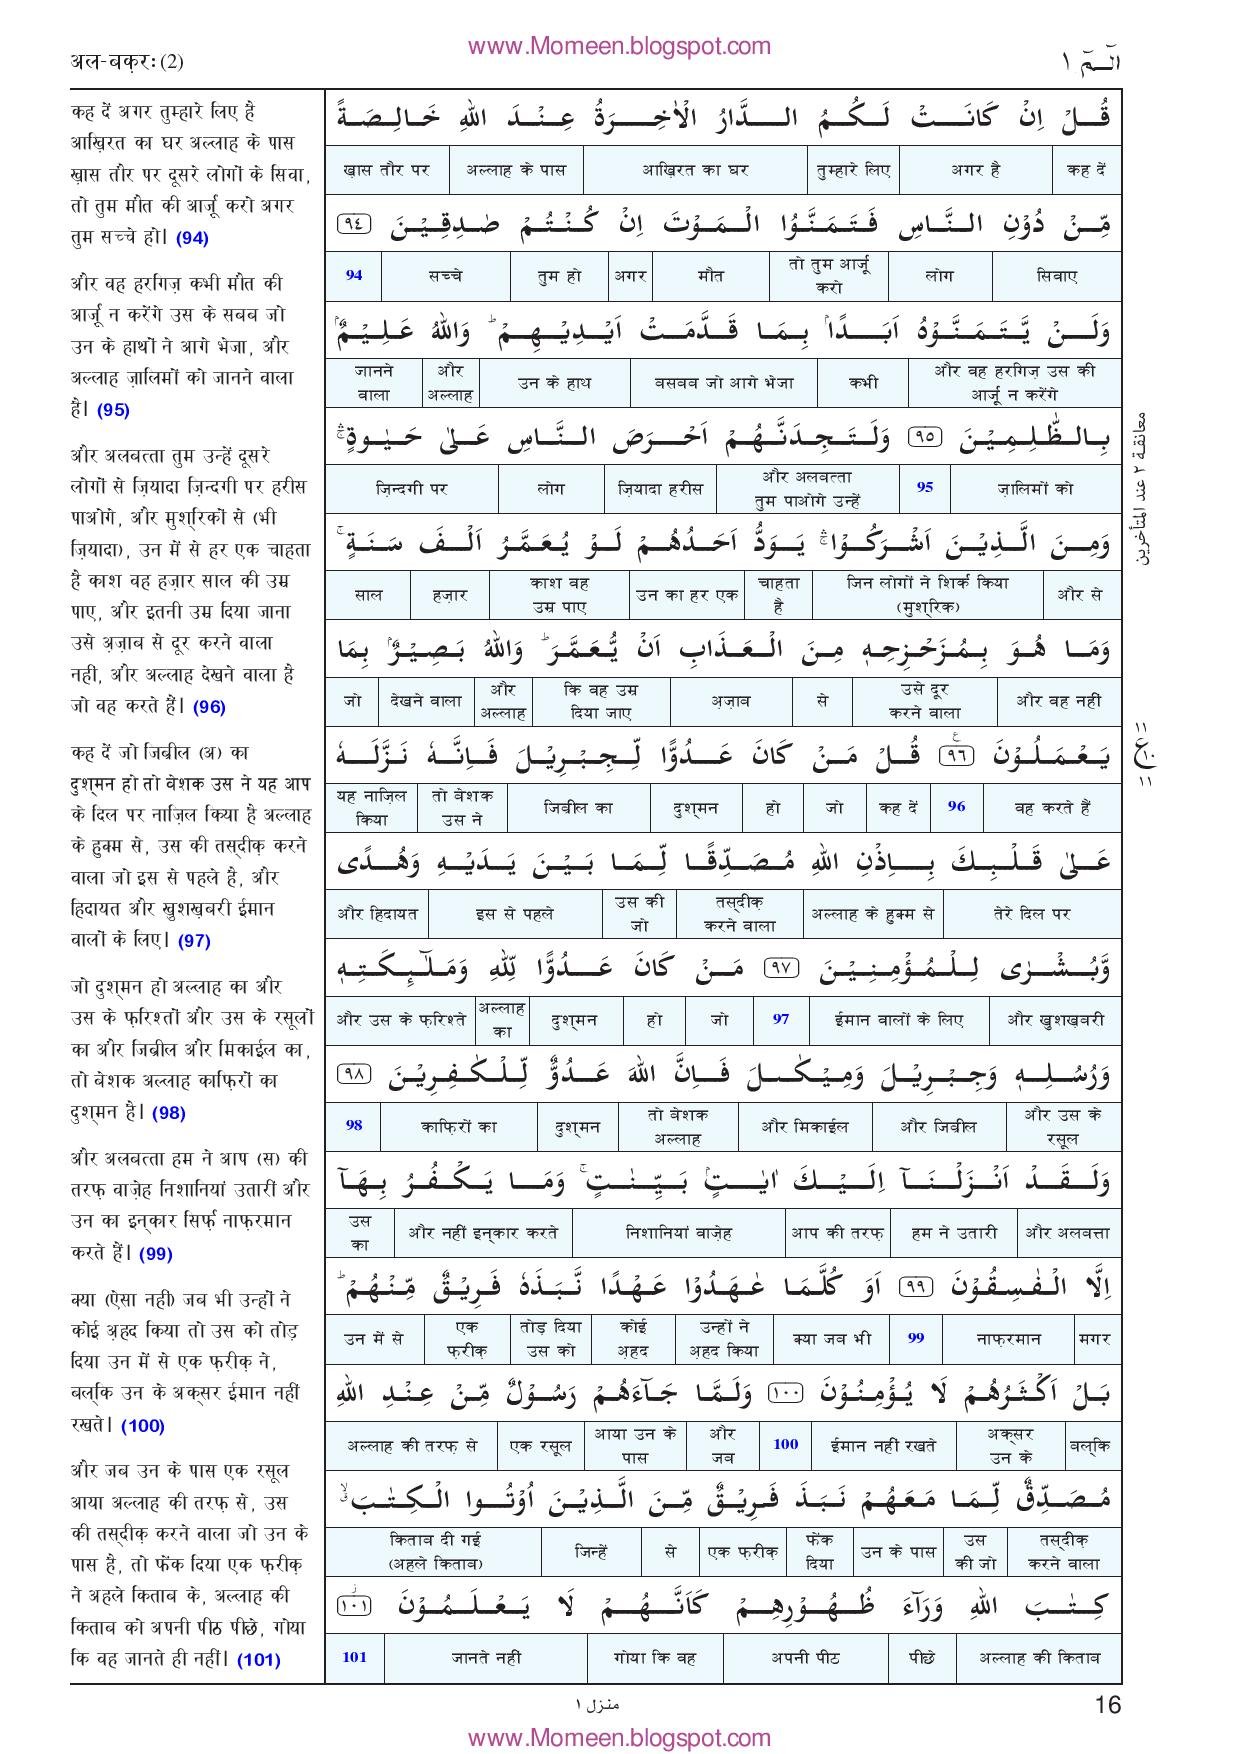 www.Momeen.blogspot.com
अल-बक़रः (2)
الٓـمّٓ ١
कह दें अगर तुम्हारे लिए है
आख़िरत का घर अल्लाह के पास
ख़ास तौर पर दूसरे लोगों के सिवा,
तो तुम मौत की आर्ज़ू करो अगर
तुम सच्चे हो। (94)
और वह हरगिज़ कभी मौत की
आर्ज़ू न करेंगे उस के सबब जो
उन के हाथों ने आगे भेजा, और
अल्लाह ज़ालिमों को जानने वाला
है। (95)
और अलबत्ता तुम उन्हें दूसरे
लोगों से ज़ियादा ज़िन्दगी पर हरीस
पाओगे, और मुश्रिकों से (भी
ज़ियादा), उन में से हर एक चाहता
है काश वह हज़ार साल की उम्र
पाए, और इतनी उम्र दिया जाना
उसे अज़ाब से दूर करने वाला
नहीं, और अल्लाह देखने वाला है
जो वह करते हैं। (96)
कह दें जो जिब्रील (अ) का
दुश्मन हो तो बेशक उस ने यह आप
के दिल पर नाज़िल किया है अल्लाह
के हुक्म से, उस की तस्दीक़ करने
वाला जो इस से पहले है, और
हिदायत और खुशख़बरी ईमान
वालों के लिए। (97)
जो दुश्मन हो अल्लाह का और
उस के फ़रिश्तों और उस के रसूलों
का और जिब्रील और मिकाईल का,
तो बेशक अल्लाह काफ़िरों का
दुश्मन है। (98)
और अलबत्ता हम ने आप (स) की
तरफ़ वाज़ेह निशानियां उतारीं और
उन का इन्कार सिर्फ़ नाफ़रमान
करते हैं। (99)
क्या (ऐसा नहीं) जब भी उन्हों ने
कोई अ़हद किया तो उस को तोड़
दिया उन में से एक फ़रीक़ ने,
बल्कि उन के अक्सर ईमान नहीं
रखते। (100)
और जब उन के पास एक रसूल
आया अल्लाह की तरफ़ से, उस
की तस्दीक़ करने वाला जो उन के
पास है, तो फेंक दिया एक फ़रीक़
ने अहले किताब के, अल्लाह की
किताब को अपनी पीठ पीछे, गोया
कि वह जानते ही नहीं। (101)
قُلْ اِنْ كَانَتْ لَكُمُ الدَّارُ الْاٰخِرَةُ عِنْدَ اللّٰهِ خَالِصَةً
कह दें अगर है तुम्हारे लिए आख़िरत का घर अल्लाह के पास ख़ास तौर पर
مِّنْ دُوْنِ النَّاسِ فَتَمَنَّوُا الْمَوْتَ اِنْ كُنْتُمْ صٰدِقِيْنَ ٩٤
सिवाए लोग तो तुम आर्ज़ू करो मौत अगर तुम हो सच्चे 94
وَلَنْ يَّتَمَنَّوْهُ اَبَدًۢا بِمَا قَدَّمَتْ اَيْدِيْهِمْ ؕ وَاللّٰهُ عَلِيْمٌۢ
और वह हरगिज़ उस की आर्ज़ू न करेंगे कभी बसबब जो आगे भेजा उन के हाथ और अल्लाह जानने वाला
بِالظّٰلِمِيْنَ ٩٥ وَلَتَجِدَنَّهُمْ اَحْرَصَ النَّاسِ عَلٰى حَيٰوةٍ ۛۚ
ज़ालिमों को 95 और अलबत्ता तुम पाओगे उन्हें ज़ियादा हरीस लोग ज़िन्दगी पर
معانقة ٢ عند المتأخرين
وَمِنَ الَّذِيْنَ اَشْرَكُوْا ۛۚ يَوَدُّ اَحَدُهُمْ لَوْ يُعَمَّرُ اَلْفَ سَنَةٍ ۚ
और से जिन लोगों ने शिर्क किया (मुश्रिक) चाहता है उन का हर एक काश वह उम्र पाए हज़ार साल
وَمَا هُوَ بِمُزَحْزِحِهٖ مِنَ الْعَذَابِ اَنْ يُّعَمَّرَ ؕ وَاللّٰهُ بَصِيْرٌۢ بِمَا
और वह नहीं उसे दूर करने वाला से अज़ाब कि वह उम्र दिया जाए और अल्लाह देखने वाला जो
يَعْمَلُوْنَ ٩٦ قُلْ مَنْ كَانَ عَدُوًّا لِّجِبْرِيْلَ فَاِنَّهٗ نَزَّلَهٗ
١١ ع ١٠ ١١
वह करते हैं 96 कह दें जो हो दुश्मन जिब्रील का तो बेशक उस ने यह नाज़िल किया
عَلٰى قَلْبِكَ بِاِذْنِ اللّٰهِ مُصَدِّقًا لِّمَا بَيْنَ يَدَيْهِ وَهُدًى
तेरे दिल पर अल्लाह के हुक्म से तस्दीक़ करने वाला उस की जो इस से पहले और हिदायत
وَّبُشْرٰى لِلْمُؤْمِنِيْنَ ٩٧ مَنْ كَانَ عَدُوًّا لِّلّٰهِ وَمَلٰٓئِكَتِهٖ
और खुशख़बरी ईमान वालों के लिए 97 जो हो दुश्मन अल्लाह का और उस के फ़रिश्ते
وَرُسُلِهٖ وَجِبْرِيْلَ وَمِيْكٰىلَ فَاِنَّ اللّٰهَ عَدُوٌّ لِّلْكٰفِرِيْنَ ٩٨
और उस के रसूल और जिब्रील और मिकाईल तो बेशक अल्लाह दुश्मन काफ़िरों का 98
وَلَقَدْ اَنْزَلْنَآ اِلَيْكَ اٰيٰتٍۢ بَيِّنٰتٍ ۚ وَمَا يَكْفُرُ بِهَآ
और अलबत्ता हम ने उतारी आप की तरफ़ निशानियां वाज़ेह और नहीं इन्कार करते उस का
اِلَّا الْفٰسِقُوْنَ ٩٩ اَوَ كُلَّمَا عٰهَدُوْا عَهْدًا نَّبَذَهٗ فَرِيْقٌ مِّنْهُمْ ؕ
मगर नाफ़रमान 99 क्या जब भी उन्हों ने अ़हद किया कोई अ़हद तोड़ दिया उस को एक फ़रीक़ उन में से
بَلْ اَكْثَرُهُمْ لَا يُؤْمِنُوْنَ ١٠٠ وَلَمَّا جَآءَهُمْ رَسُوْلٌ مِّنْ عِنْدِ اللّٰهِ
बल्कि अक्सर उन के ईमान नहीं रखते 100 और जब आया उन के पास एक रसूल अल्लाह की तरफ़ से
مُصَدِّقٌ لِّمَا مَعَهُمْ نَبَذَ فَرِيْقٌ مِّنَ الَّذِيْنَ اُوْتُوا الْكِتٰبَ ۙ
तस्दीक़ करने वाला उस की जो उन के पास फेंक दिया एक फ़रीक़ से जिन्हें किताब दी गई (अहले किताब)
كِتٰبَ اللّٰهِ وَرَآءَ ظُهُوْرِهِمْ كَاَنَّهُمْ لَا يَعْلَمُوْنَ ١٠١
अल्लाह की किताब पीछे अपनी पीठ गोया कि वह जानते नहीं 101
منزل ١
16
www.Momeen.blogspot.com